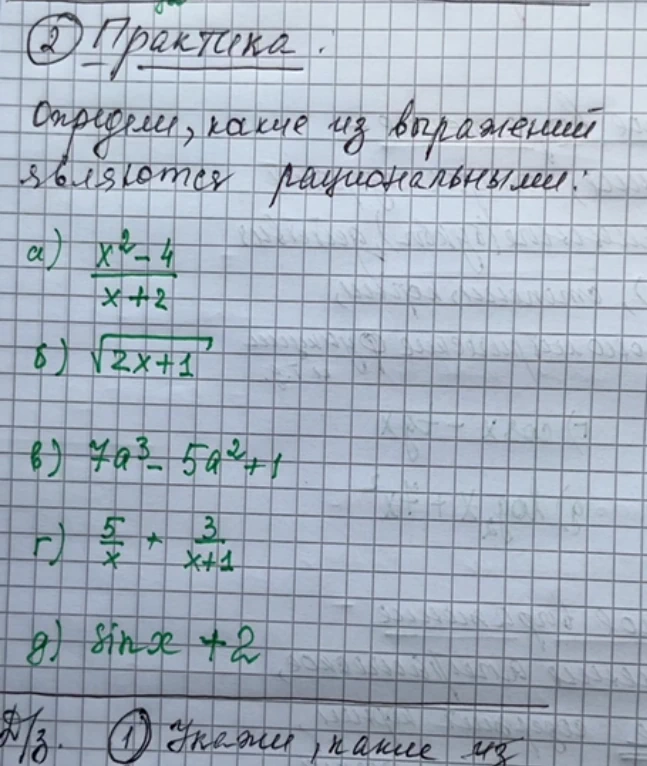 ② Практика.
Определи, какие из выражений
являются рациональными:
а) \frac{x^2-4}{x+2}
б) \sqrt{2x+1}
в) 7a^3 - 5a^2 + 1
г) \frac{5}{x} + \frac{3}{x+1}
д) sin x + 2
Д/з. ① Укажи, какие из